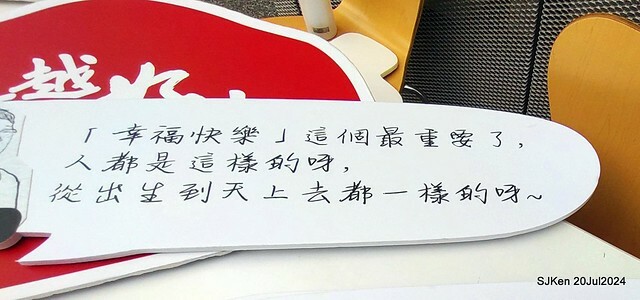 越
「幸福快樂」這個最重要了，
人都是這樣的呀，
從出生到天上去都一樣的呀~
SJKen 20Jul2024